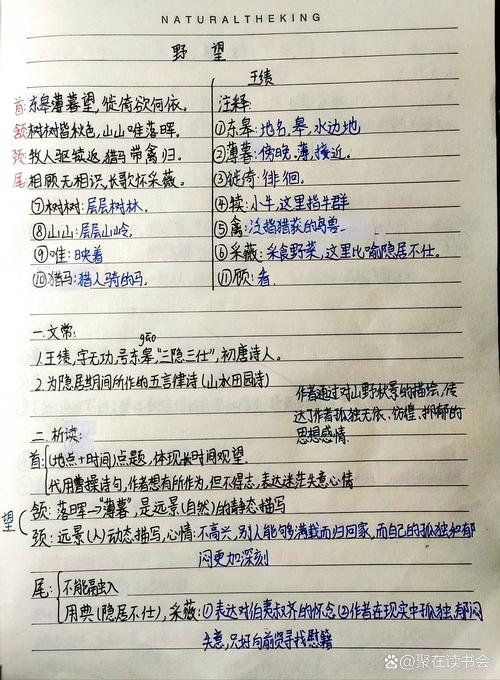 NATURALTHEKING
野 望
王绩
首:东皋薄暮望,徙倚欲何依。
颔:树树皆秋色,山山唯落晖。
颈:牧人驱犊返,猎马带禽归。
尾:相顾无相识,长歌怀采薇。
⑦树树:层层树林.
⑧山山:层层山岭.
⑨唯:映着
⑩猎马:猎人骑的马.
注释:
①东皋:地名,皋,水边地
②薄暮:傍晚.薄,接近.
③徙倚:徘徊.
④犊:小牛,这里指牛群
⑤禽:泛指猎获的鸟兽
⑥采薇:采食野菜,这里比喻隐居不仕.
⑾顾:看.
一.文常:
gāo
1.王绩,字无功,号东皋,"三隐三仕",初唐诗人。
2.为隐居期间所作的五言律诗(山水田园诗)
作者通过对山野秋景的描绘,传
达了作者孤独无依、彷徨、抑郁的
思想感情.
二.析读:
首:(地点+时间)点题,体现长时间观望.
代用曹操诗句,作者想有所作为,但不得志,表达迷茫失意心情
望
颔:落晖→"薄暮",是远景(自然)的静态描写
颈:远景(人)动态描写,心情:不高兴,别人能够满载而归回家,而自己的孤独和郁
闷更加深刻
尾:不能融入
用典(隐居不仕),采薇:①表达对伯夷叔齐的怀念②作者在现实中孤独郁闷
失意,只好向前贤寻找慰籍
聚在读书会